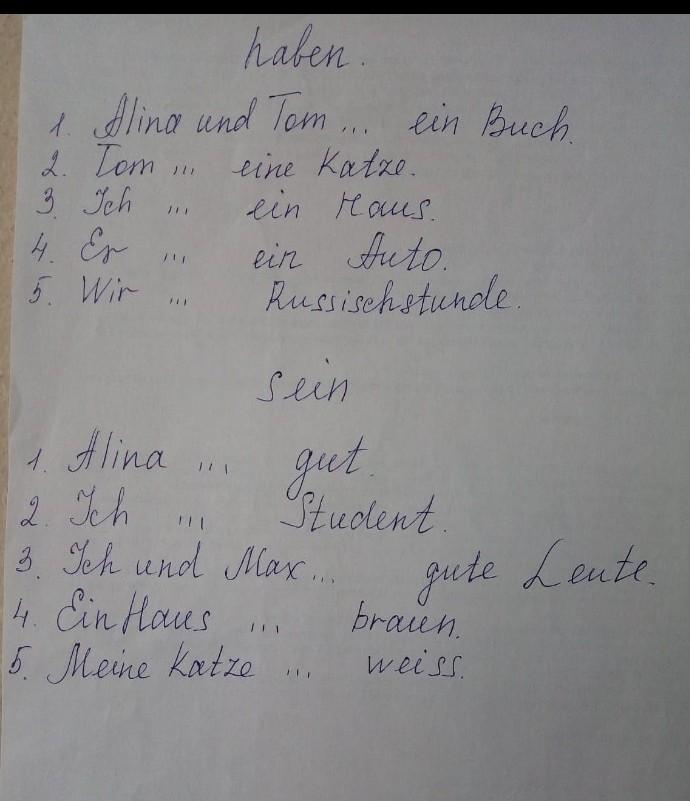 haben.
1. Alina und Tom ... ein Buch.
2. Tom ... eine Katze.
3. Ich ... ein Haus.
4. Er ... ein Auto.
5. Wir ... Russischstunde.
sein
1. Alina ... gut.
2. Ich ... Student.
3. Ich und Max... gute Leute.
4. Ein Haus ... braun.
5. Meine Katze ... weiss.